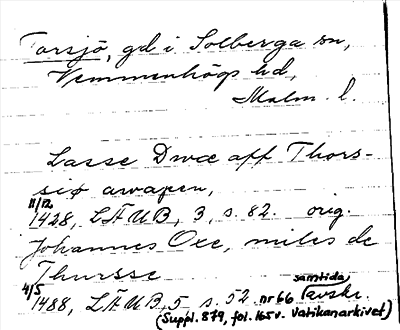 Torsjö, gd i Solberga sn,
Vemmenhögs hd,
Malm. l.
Lasse Dwæ aff Thors-
siø awapen,
11/12
1428, LÄUB, 3, s. 82. orig.
Johannes Oxe, miles de
Thursse
4/5 samtida
1488, LÄUB, 5 s. 52 nr 66 avskr.
(Suppl. 879, fol. 165v. Vatikanarkivet)